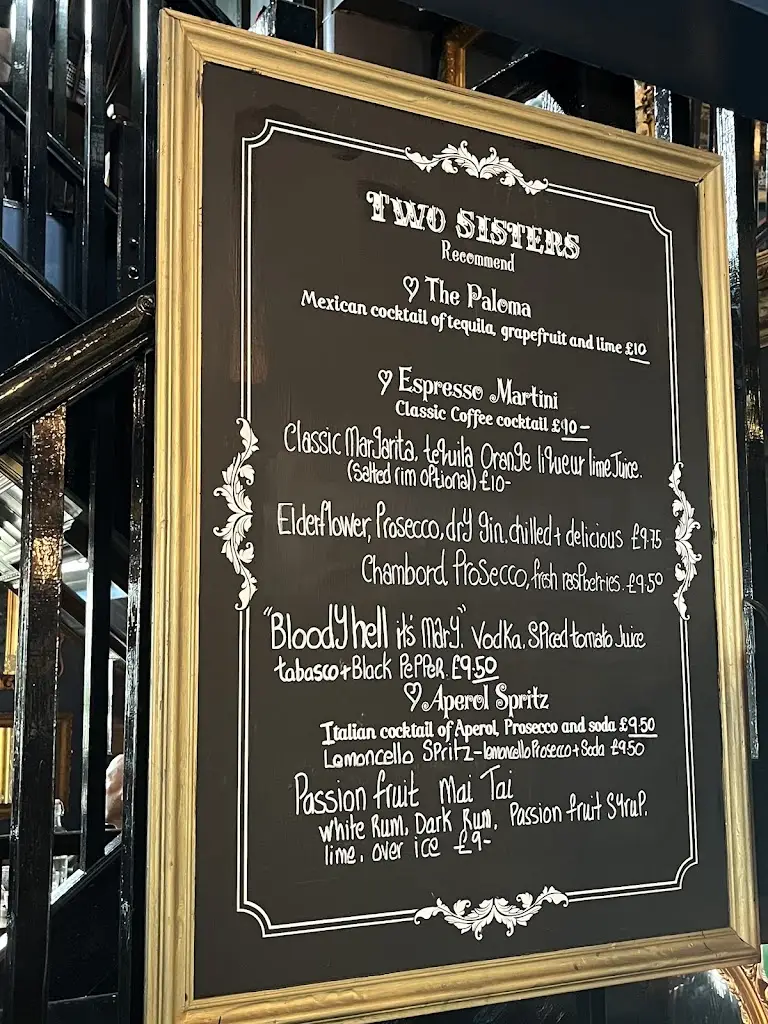 TWO SISTERS
Recommend
The Paloma
Mexican cocktail of tequila, grapefruit and lime £10
Espresso Martini
Classic Coffee cocktail £10-
Classic Margarita, tequila Orange liqueur lime Juice.
(Salted rim optional) £10-
Elderflower, Prosecco, dry gin, chilled + delicious £9.75
Chambord, Prosecco, fresh raspberries. £9.50
"Bloody hell it's Mary". Vodka, Spiced tomato Juice
tabasco + Black Pepper. £9.50
Aperol Spritz
Italian cocktail of Aperol, Prosecco and soda £9.50
Lemoncello Spritz - lemoncello Prosecco + Soda £9.50
Passion fruit Mai Tai
White Rum, Dark Rum, Passion fruit Syrup.
lime, over ice £9-